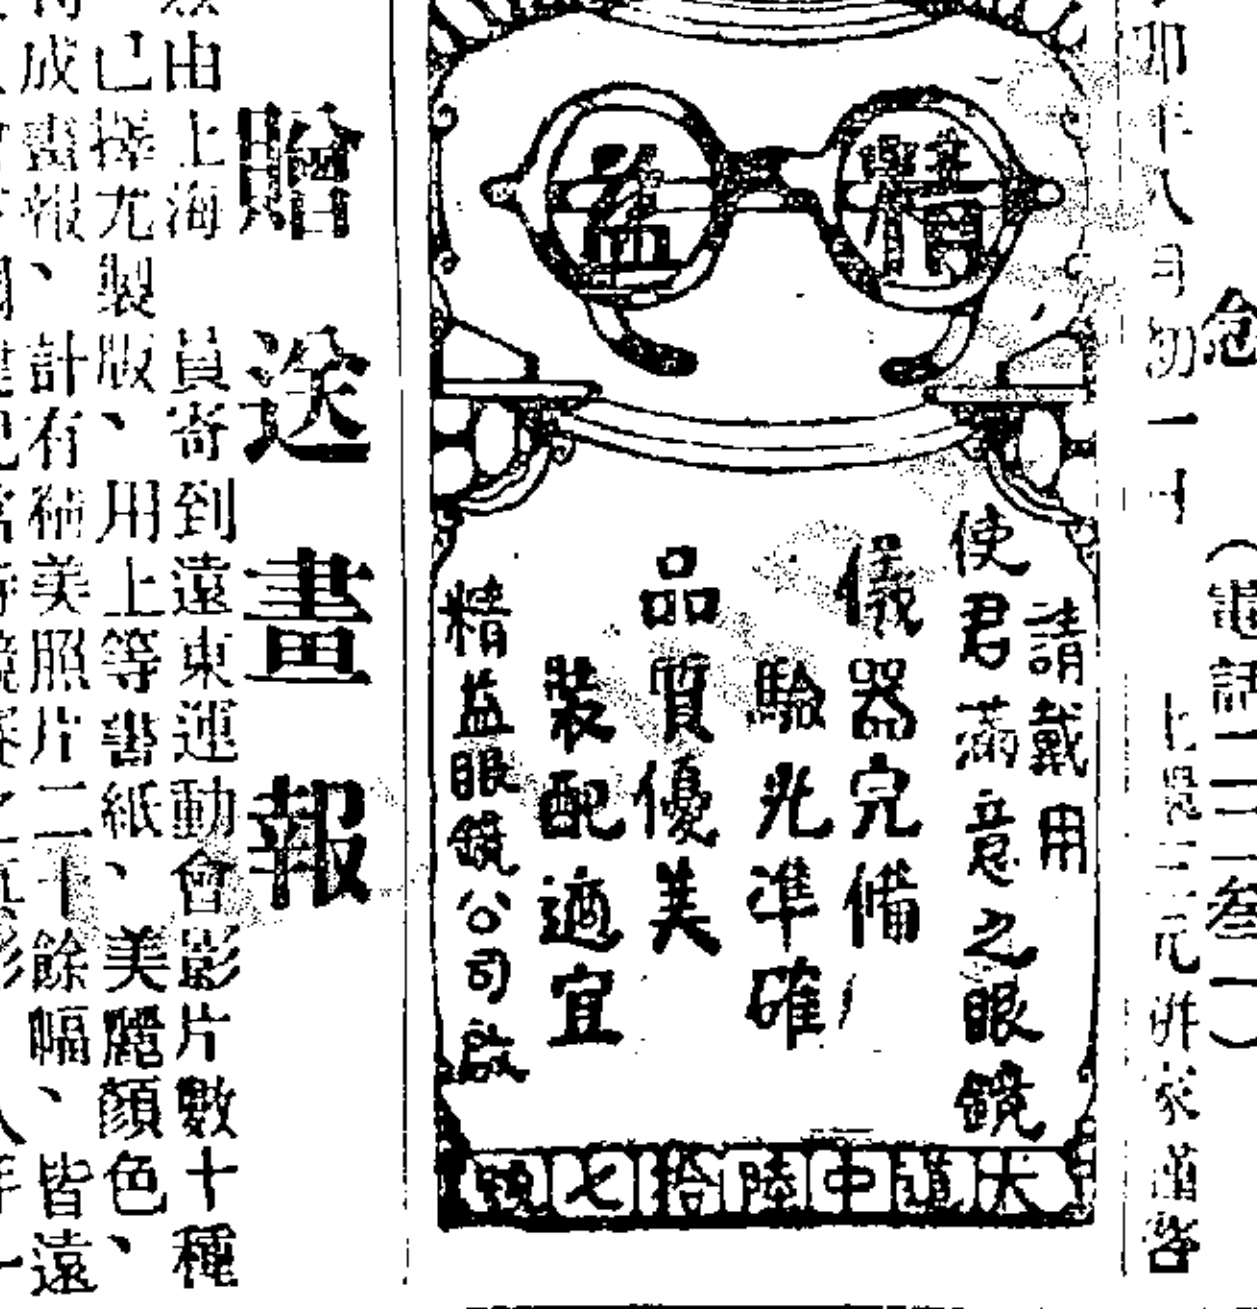 念
(電話
年八月初一日
精益
請戴用
使君滿意之眼鏡
儀器完備
驗光準確
品質優美
裝配適宜
精益眼鏡公司啟
大道中陸拾七號
贈送畫報
由上海 員寄到遠東運動會影片數十種
已擇尤製版、用上等書紙、美麗顏色、
成畫報、計有精美照片二十餘幅、皆遠